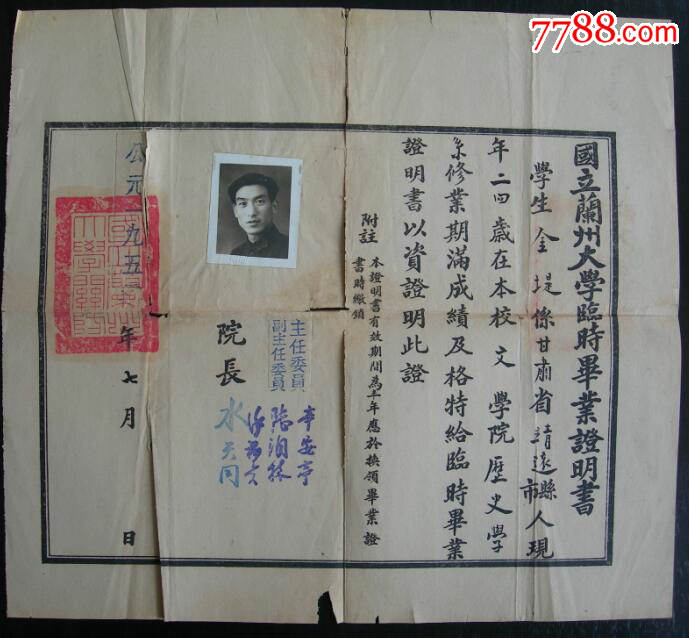 7788.com
國立蘭州大學臨時畢業證明書
學生金堤係甘肅省靖遠縣市人現
年二四歲在本校文學院歷史學
系修業期滿成績及格特給臨時畢業
證明書以資證明此證
附註
本證明書有效期間為半年應於換領畢業證
書時繳銷
主任委員
副主任委員
辛安亭
陸潤林
院長
水天同
公元一九五一年七月 日
國立蘭州大學關防